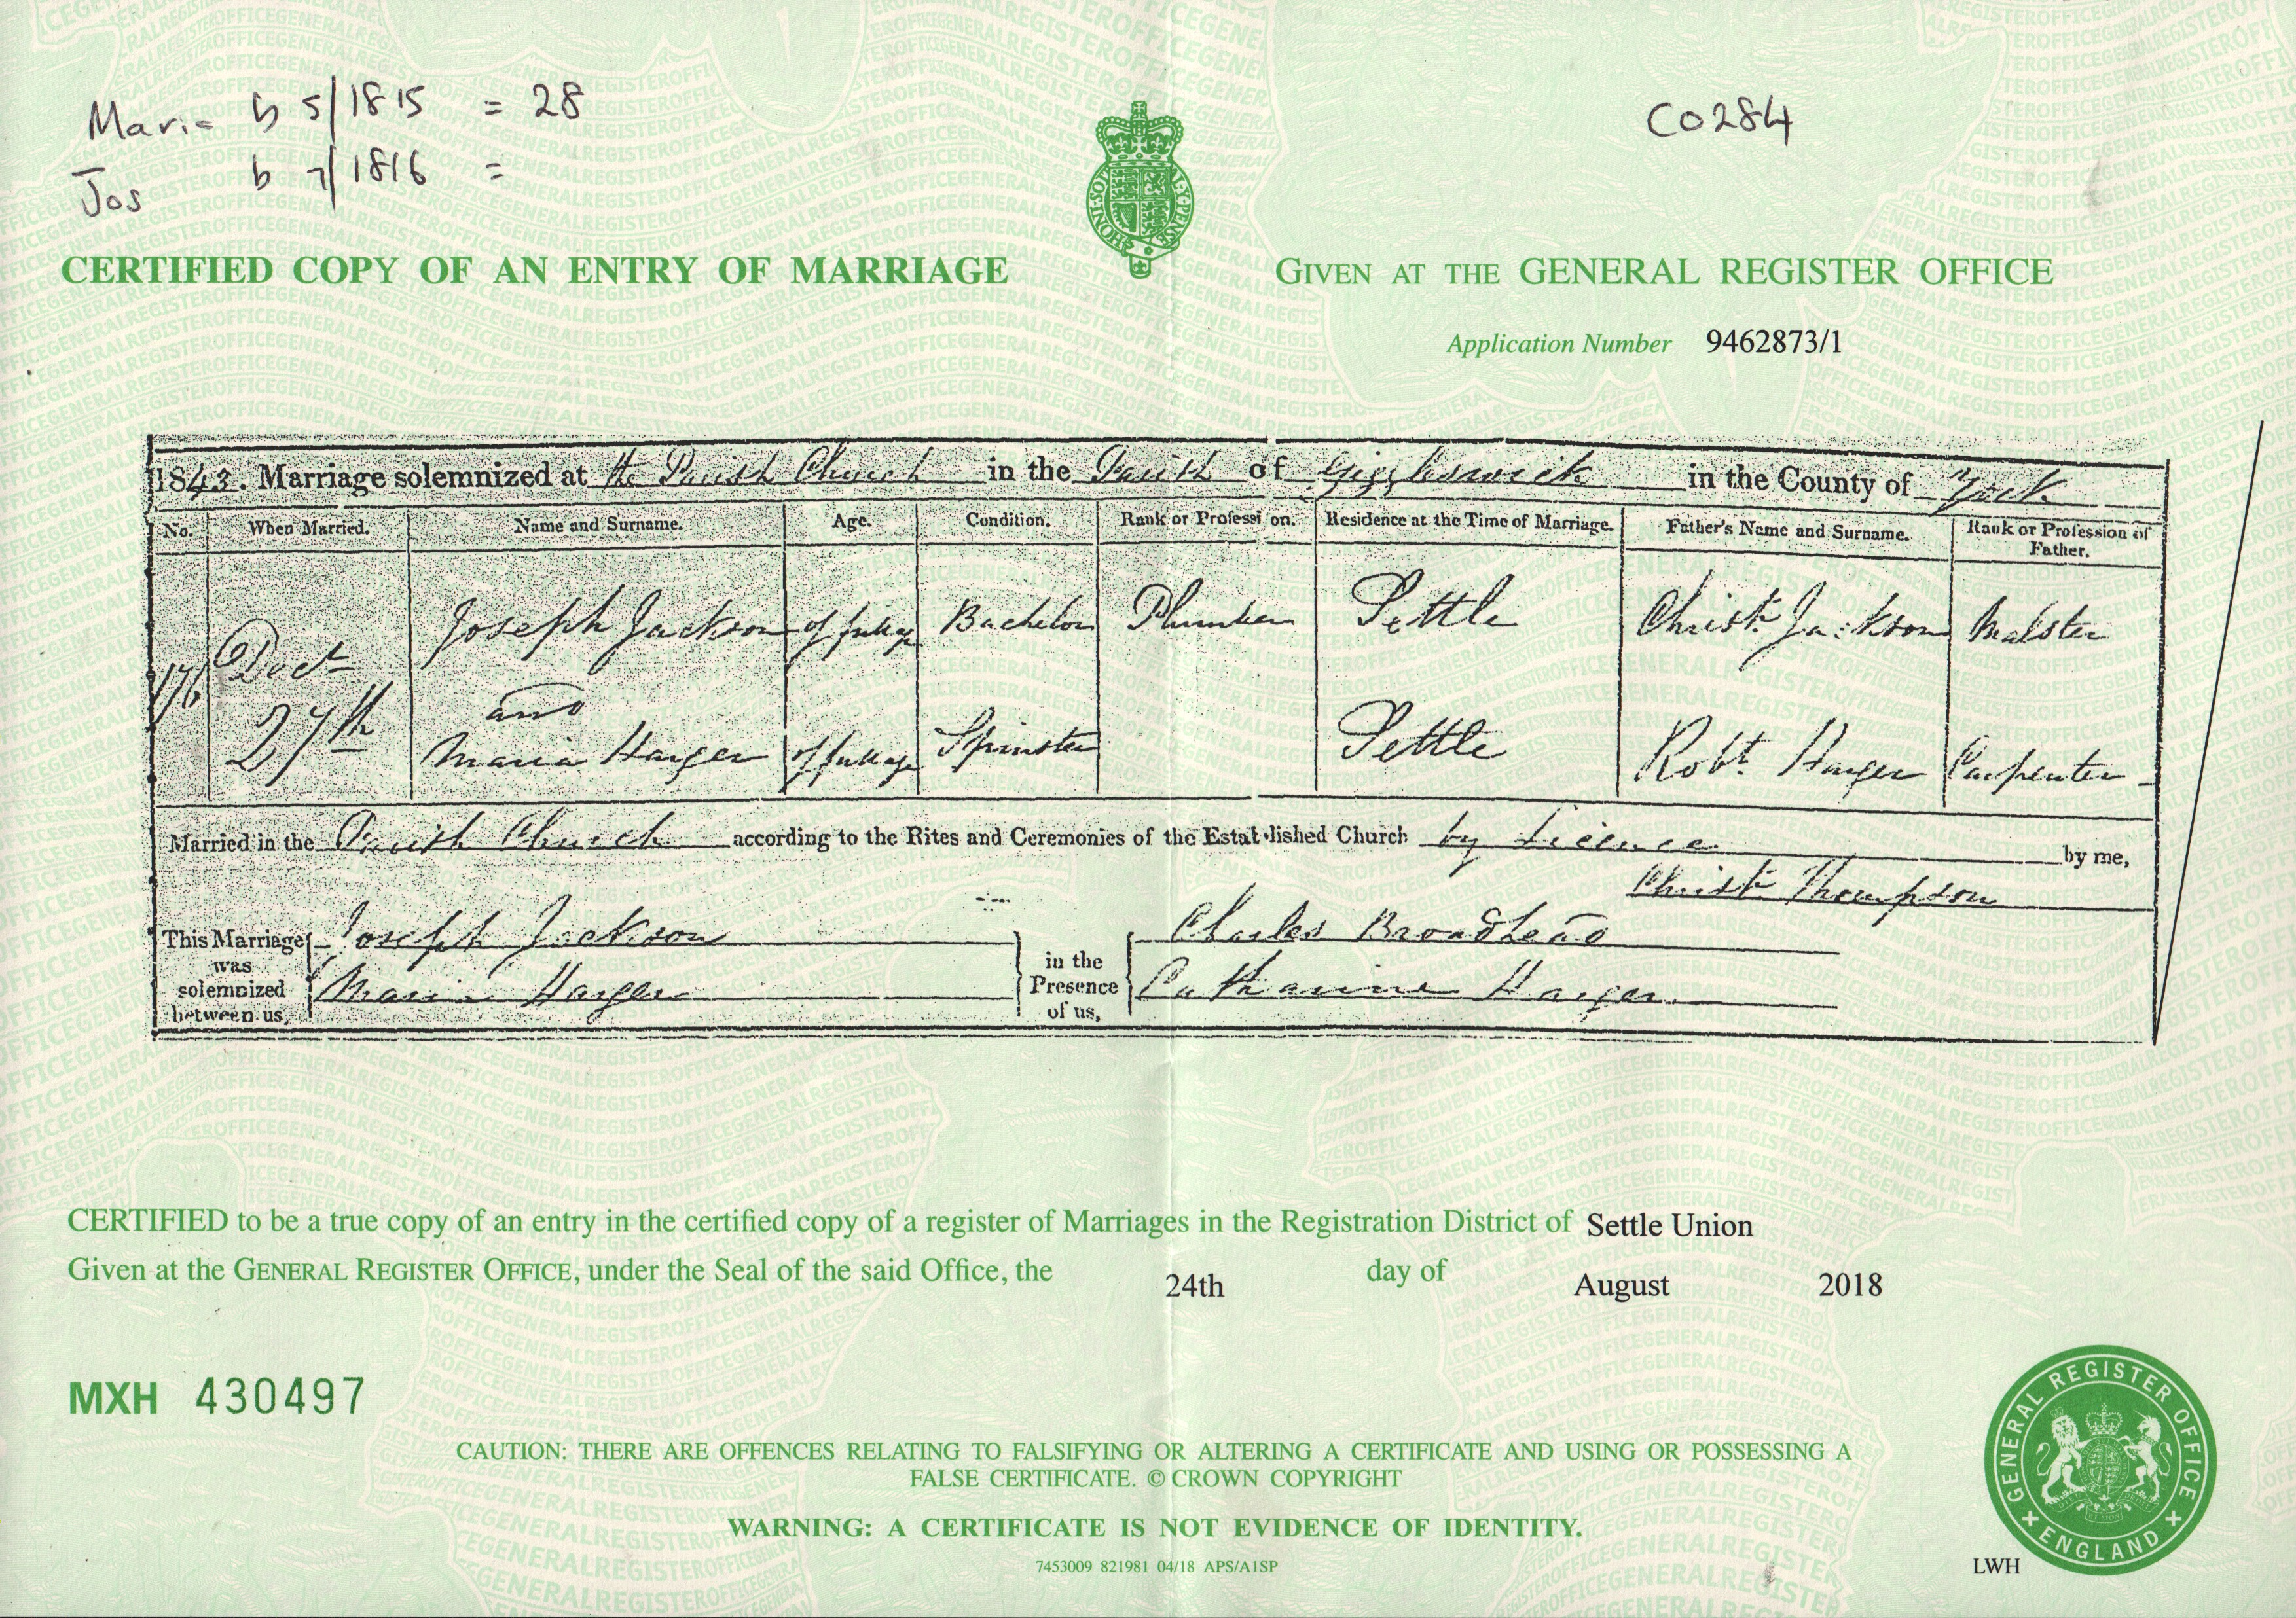 Maria b 5/1815 = 28
Jos b 7/1816 =
C0284
CERTIFIED COPY OF AN ENTRY OF MARRIAGE
GIVEN AT THE GENERAL REGISTER OFFICE
Application Number 9462873/1
1843. Marriage solemnized at the Parish Church in the Parish of Giggleswick in the County of York
No. When Married. Name and Surname. Age. Condition. Rank or Profession. Residence at the Time of Marriage. Father's Name and Surname. Rank or Profession of Father.
176 Decr 27th Joseph Jackson of full age Bachelor Plumber Settle Christr Jackson Malster
and
Maria Harger of full age Spinster Settle Robt. Harger Carpenter
Married in the Parish Church according to the Rites and Ceremonies of the Established Church by Licence by me,
Christr Thompson
This Marriage was solemnized between us, Joseph Jackson Maria Harger in the Presence of us, Charles Broadhead Catharine Harger
CERTIFIED to be a true copy of an entry in the certified copy of a register of Marriages in the Registration District of Settle Union
Given at the GENERAL REGISTER OFFICE, under the Seal of the said Office, the 24th day of August 2018
MXH 430497
CAUTION: THERE ARE OFFENCES RELATING TO FALSIFYING OR ALTERING A CERTIFICATE AND USING OR POSSESSING A
FALSE CERTIFICATE. © CROWN COPYRIGHT
WARNING: A CERTIFICATE IS NOT EVIDENCE OF IDENTITY.
7453009 821981 04/18 APS/A1SP
GENERAL REGISTER OFFICE ENGLAND
LWH